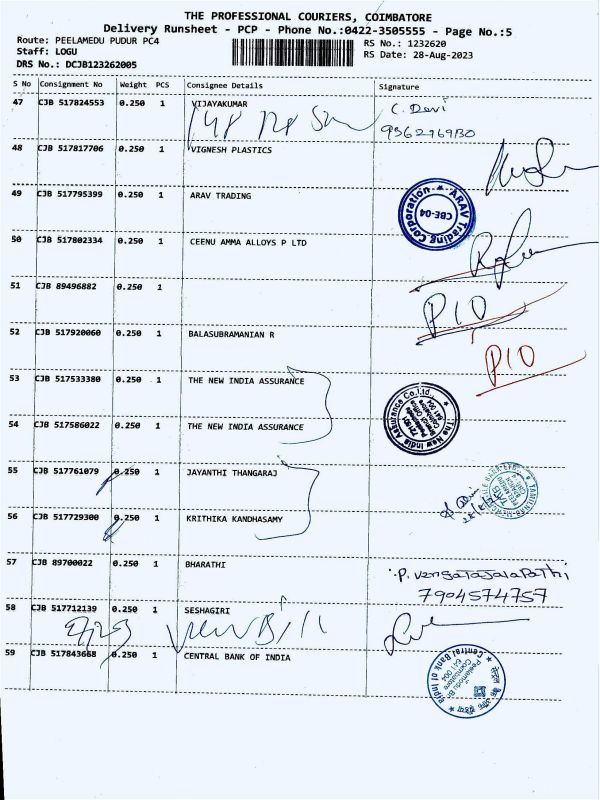 THE PROFESSIONAL COURIERS, COIMBATORE
Delivery Runsheet - PCP - Phone No.:0422-3505555 - Page No.:5
Route: PEELAMEDU PUDUR PC4 RS No.: 1232620
Staff: LOGU RS Date: 28-Aug-2023
DRS No.: DCJB123262005
S No Consignment No Weight PCS Consignee Details Signature
47 CJB 517824553 0.250 1 VIJAYAKUMAR C. Devi
9362769130
48 CJB 517817706 0.250 1 VIGNESH PLASTICS
49 CJB 517795399 0.250 1 ARAV TRADING
ARAV Trading Corporation CBE-04
50 CJB 517802334 0.250 1 CEENU AMMA ALLOYS P LTD
51 CJB 89496882 0.250 1
P10
52 CJB 517920060 0.250 1 BALASUBRAMANIAN R
P10
53 CJB 517533380 0.250 1 THE NEW INDIA ASSURANCE
The New India Assurance Co.Ltd.
54 CJB 517586022 0.250 1 THE NEW INDIA ASSURANCE
55 CJB 517761079 0.250 1 JAYANTHI THANGARAJ
56 CJB 517729300 0.250 1 KRITHIKA KANDHASAMY
57 CJB 89700022 0.250 1 BHARATHI P. vengatajalapathi
7904574757
58 CJB 517712139 0.250 1 SESHAGIRI
59 CJB 517843668 0.250 1 CENTRAL BANK OF INDIA
Central Bank of India